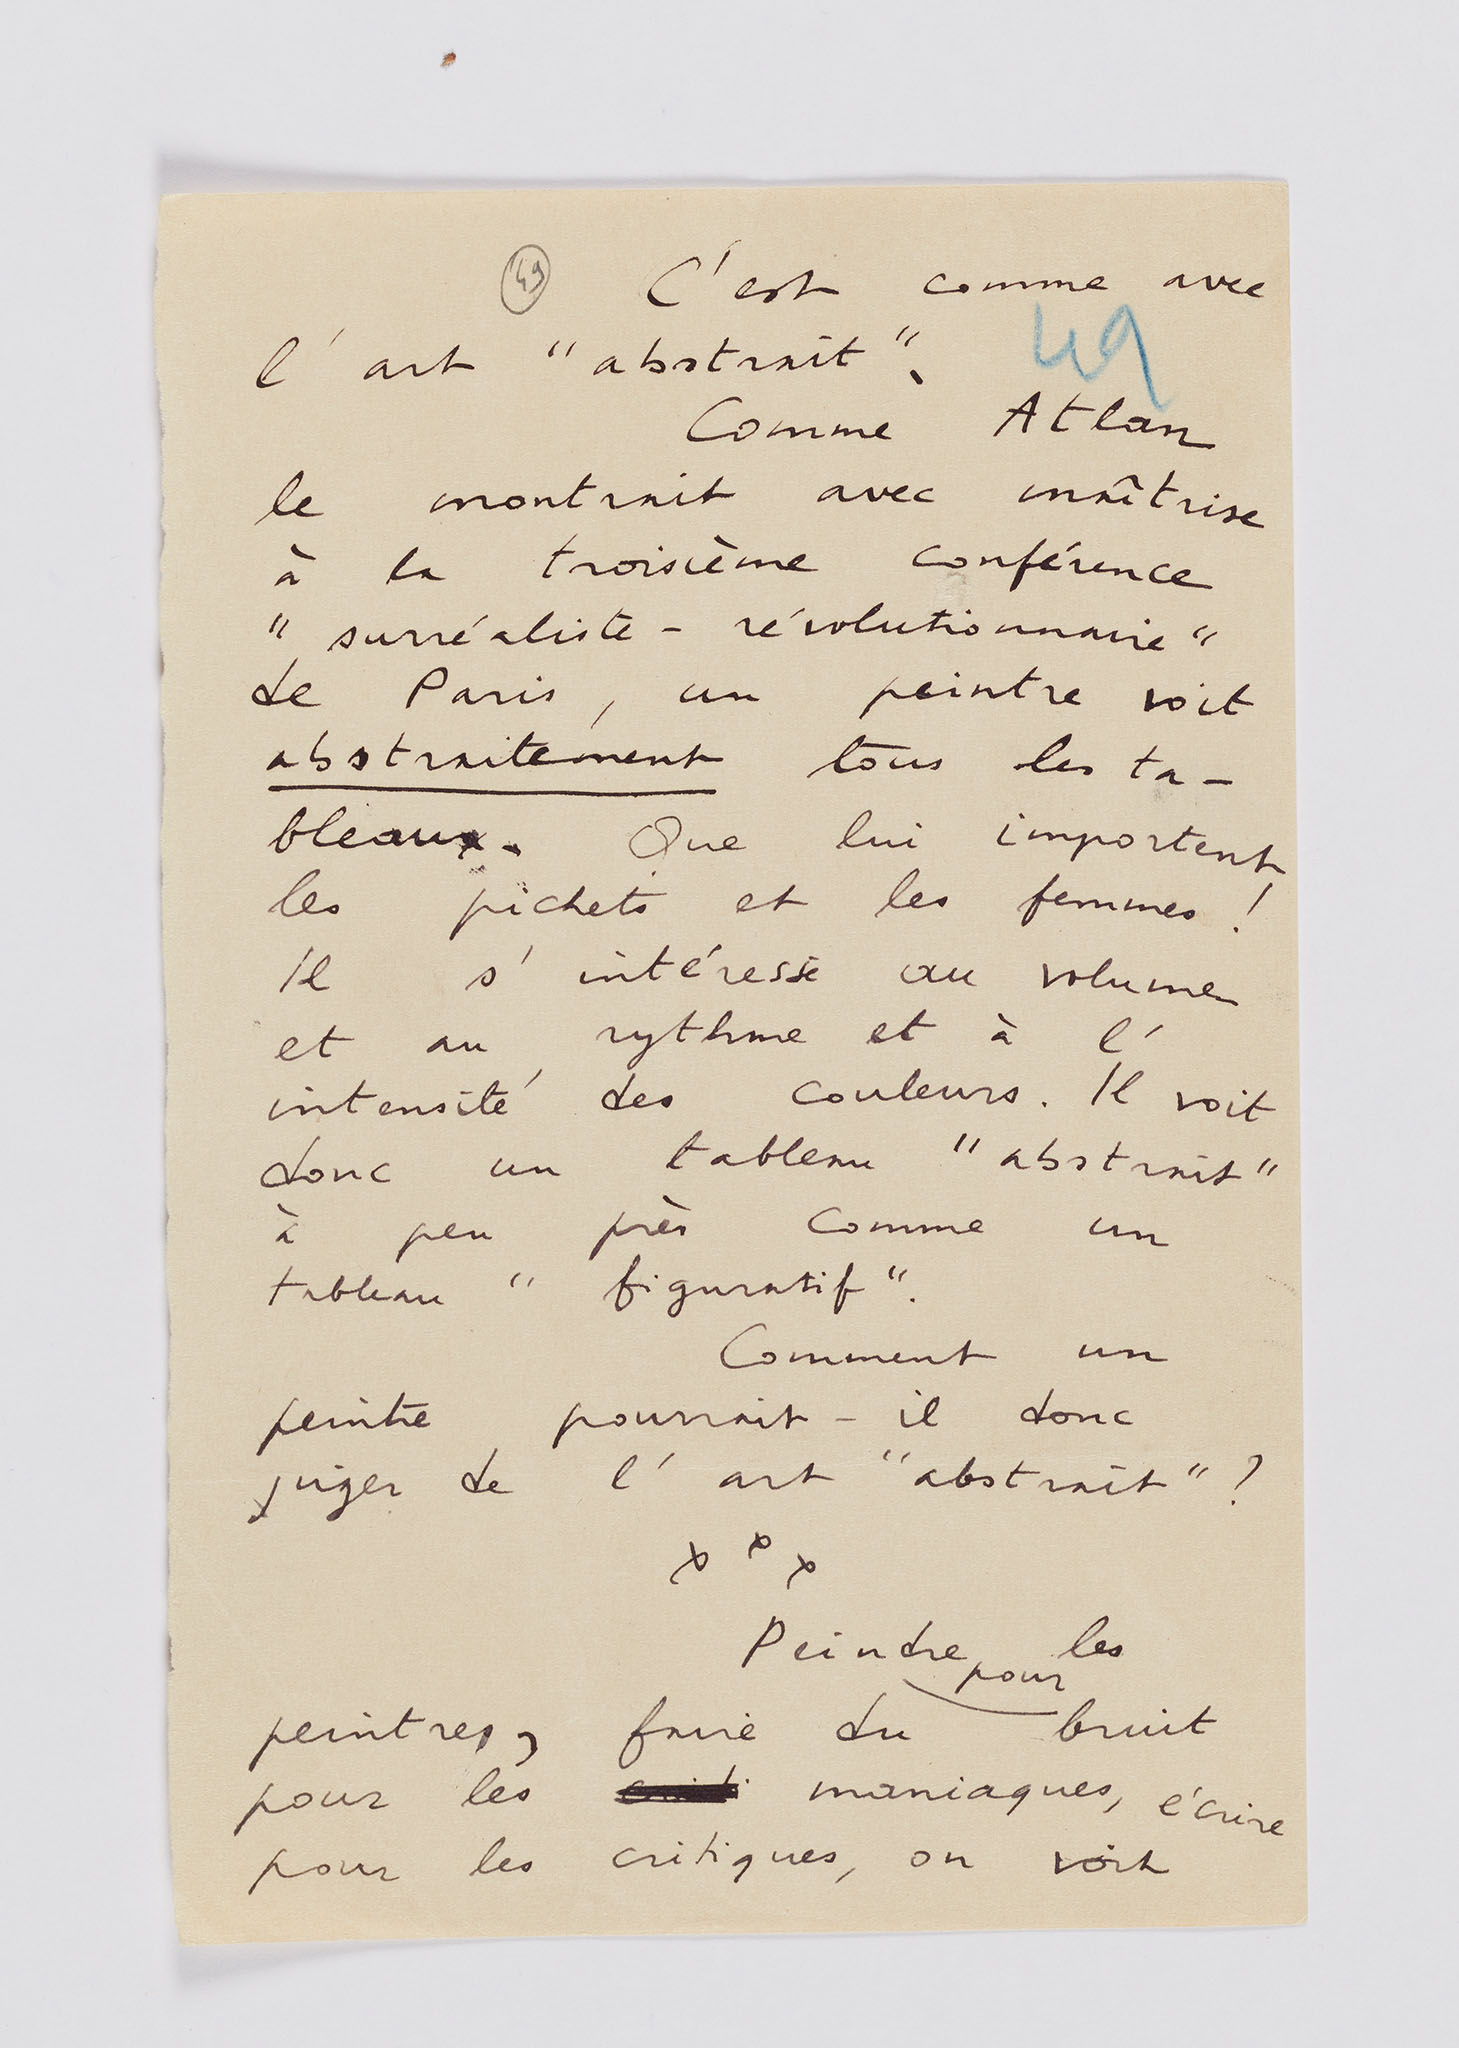 49 C'est comme avec
49
l'art "abstrait".
Comme Atlan
le montrait avec maîtrise
à la troisième conférence
"surréaliste-révolutionnaire"
de Paris, un peintre voit
abstraitement tous les ta-
bleaux. Que lui importent
les pichets et les femmes !
Il s'intéresse au volume
et au rythme et à l'
intensité des couleurs. Il voit
donc un tableau "abstrait"
à peu près comme un
tableau "figuratif".
Comment un
peintre pourrait-il donc
juger de l'art "abstrait" ?
x x x
Peindre pour les
peintres, faire du bruit
pour les maniaques, écrire
pour les critiques, on voit